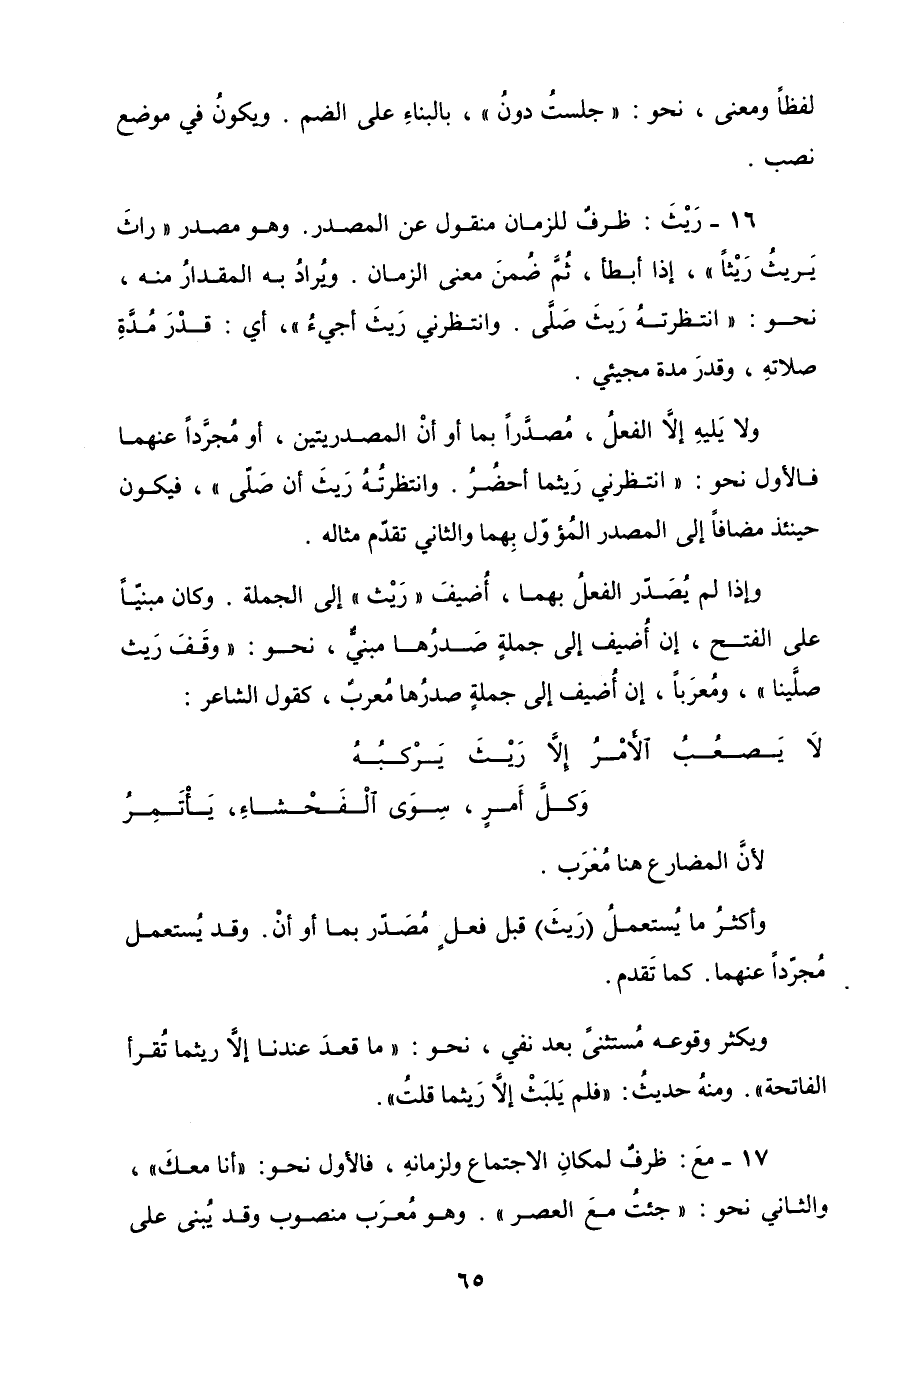 لفظاً ومعنى ، نحو : « جلستُ دونُ » ، بالبناءِ على الضم . ويكونُ في موضع
نصب .
١٦ ـ رَيْثَ : ظرفٌ للزمان منقول عن المصدر. وهو مصدر « راثَ
يَريثُ رَيْثاً » ، إذا أبطأ ، ثُمَّ ضُمنَ معنى الزمان . ويُرادُ به المقدارُ منه ،
نحو : « انتظرتهُ رَيثَ صَلَّى . وانتظرني رَيثَ أجيءُ »، أي : قدْرَ مُدَّةِ
صلاتهِ ، وقدرَ مدة مجيئي .
ولا يَليهِ إلَّا الفعلُ ، مُصدَّراً بما أو أنْ المصدريتين ، أو مُجرَّداً عنهما
فالأول نحو : « انتظرني رَيثما أحضُرُ . وانتظرتُهُ رَيثَ أن صَلّى » ، فيكون
حينئذ مضافاً إلى المصدر المُؤوّل بِهما والثاني تقدّم مثاله .
وإذا لم يُصَدّر الفعلُ بهما ، أُضيفَ « رَيْث » إلى الجملة . وكان مبنيّاً
على الفتح ، إن أُضيف إلى جملةٍ صَدرُها مبنيٌّ ، نحو : « وقَفَ رَيث
صلَّينا » ، ومُعرَباً ، إن أُضيف إلى جملةٍ صدرُها مُعربٌ ، كقول الشاعر :
لَا يَصعُبُ ٱلأَمْرُ إِلَّا رَيْثَ يَرْكَبُهُ
وَكلَّ أَمرٍ ، سِوَى ٱلْفَحْشاءِ، يَأْتَمِرُ
لأنَّ المضارع هنا مُعْرَب .
وأكثرُ ما يُستعملُ (رَيثَ) قبل فعلٍ مُصَدّر بما أو أنْ. وقد يُستعمل
مُجرّداً عنهما. كما تَقدم.
ويكثر وقوعه مُستثنىً بعد نفي ، نحو : « ما قعدَ عندنا إلَّا ريثما تُقرأ
الفاتحة». ومنهُ حديثُ: «فلم يَلبَثْ إلاَّ رَيثما قلتُ».
١٧ ـ معَ: ظرفٌ لمكانِ الاجتماع ولزمانهِ ، فالأول نحو: «أنا معكَ» ،
والثاني نحو : « جئتُ معَ العصر » . وهو مُعرَب منصوب وقد يُبنى على
٦٥